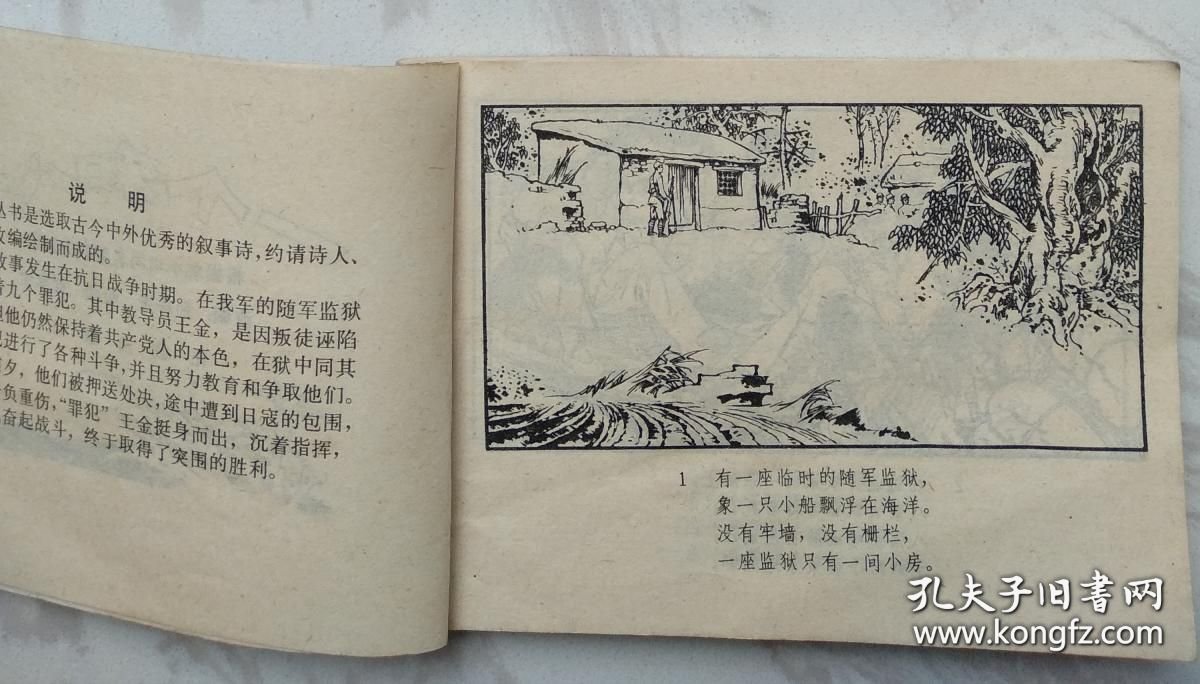 说 明
丛书是选取古今中外优秀的叙事诗，约请诗人、
改编绘制而成的。
故事发生在抗日战争时期。在我军的随军监狱
着九个罪犯。其中教导员王金，是因叛徒诬陷
但他仍然保持着共产党人的本色，在狱中同其
犯进行了各种斗争，并且努力教育和争取他们。
夕，他们被押送处决，途中遭到日寇的包围，
负重伤，“罪犯”王金挺身而出，沉着指挥，
奋起战斗，终于取得了突围的胜利。
1 有一座临时的随军监狱，
象一只小船飘浮在海洋。
没有牢墙，没有栅栏，
一座监狱只有一间小房。
孔夫子旧书网
www.kongfz.com